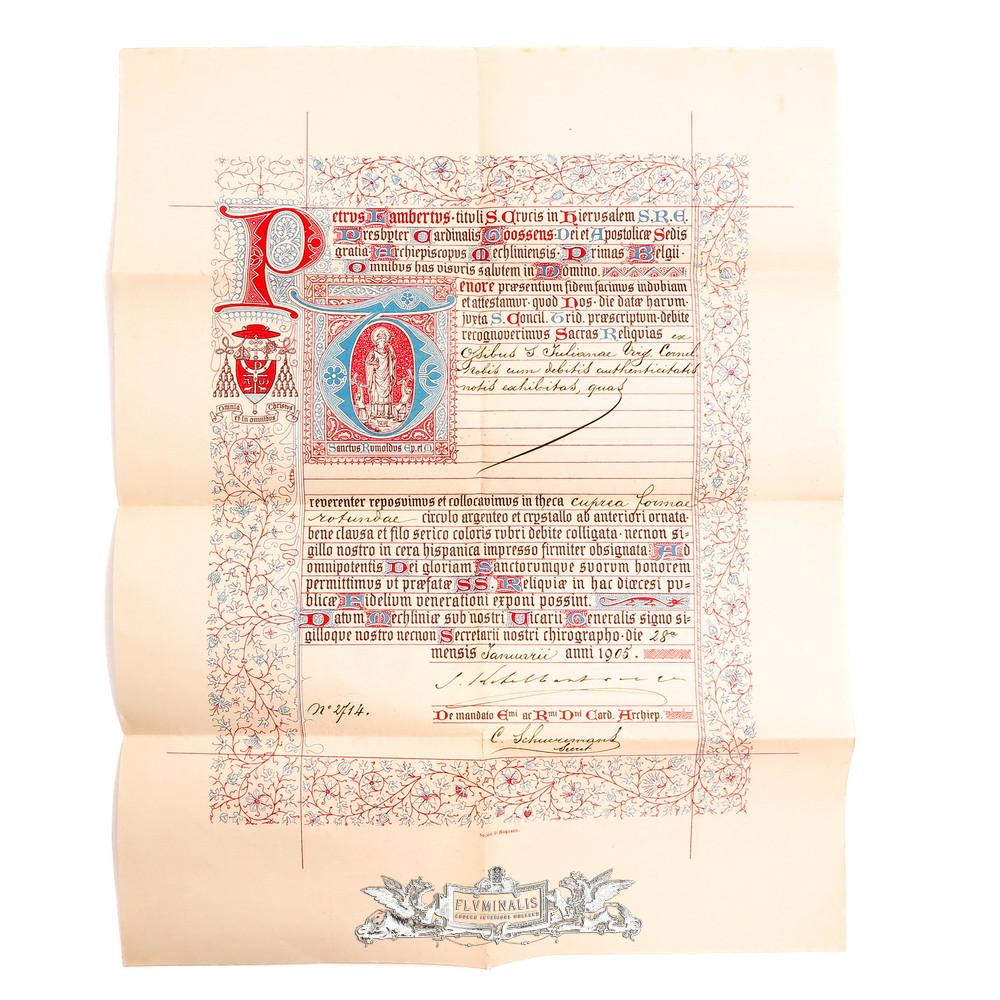 Petrvs Lambertvs · titvli S. Crvcis in Hiervsalem S.R.E.
Presbyter Cardinalis Goossens · Dei et Apostolicæ Sedis
gratia Archiepiscopvs Mechliniensis · Primas Belgii ·
Omnibvs has visvris salvtem in Domino.
Tenore præsentivm fidem facimvs indvbiam
et attestamvr · qvod Nos · die datæ harvm ·
jvxta S. Concil. Trid. præscriptvm · debite
recognoverimvs Sacras Reliqvias ex
Ossibus S Julianae Virg. Cornel
nobis cum debitis authenticitatis
notis exhibitas, quas
Omnia et in omnibus Christus
Sanctvs Rvmoldvs Ep. et M.
reverenter reposvimvs et collocavimvs in theca cuprea formae
rotundae circvlo argenteo et crystallo ab anteriori ornata ·
bene clavsa et filo serico coloris rvbri debite colligata · necnon si-
gillo nostro in cera hispanica impresso firmiter obsignata : Ad
omnipotentis Dei gloriam Sanctorvmqve svorvm honorem
permittimvs vt præfatæ SS. Reliqviæ in hac diœcesi pv=
blicæ Fidelivm venerationi exponi possint.
Datvm Mechliniæ svb nostri Vicarii Generalis signo si-
gilloqve nostro necnon Secretarii nostri chirographo · die 28a
mensis Januarii anni 1905.
Nº 2714.
De mandato Emi ac Rmi Dni Card. Archiep.
C. Schueremans
Secret
FLVMINALIS
CHURCH INTERIORS HOLLAND